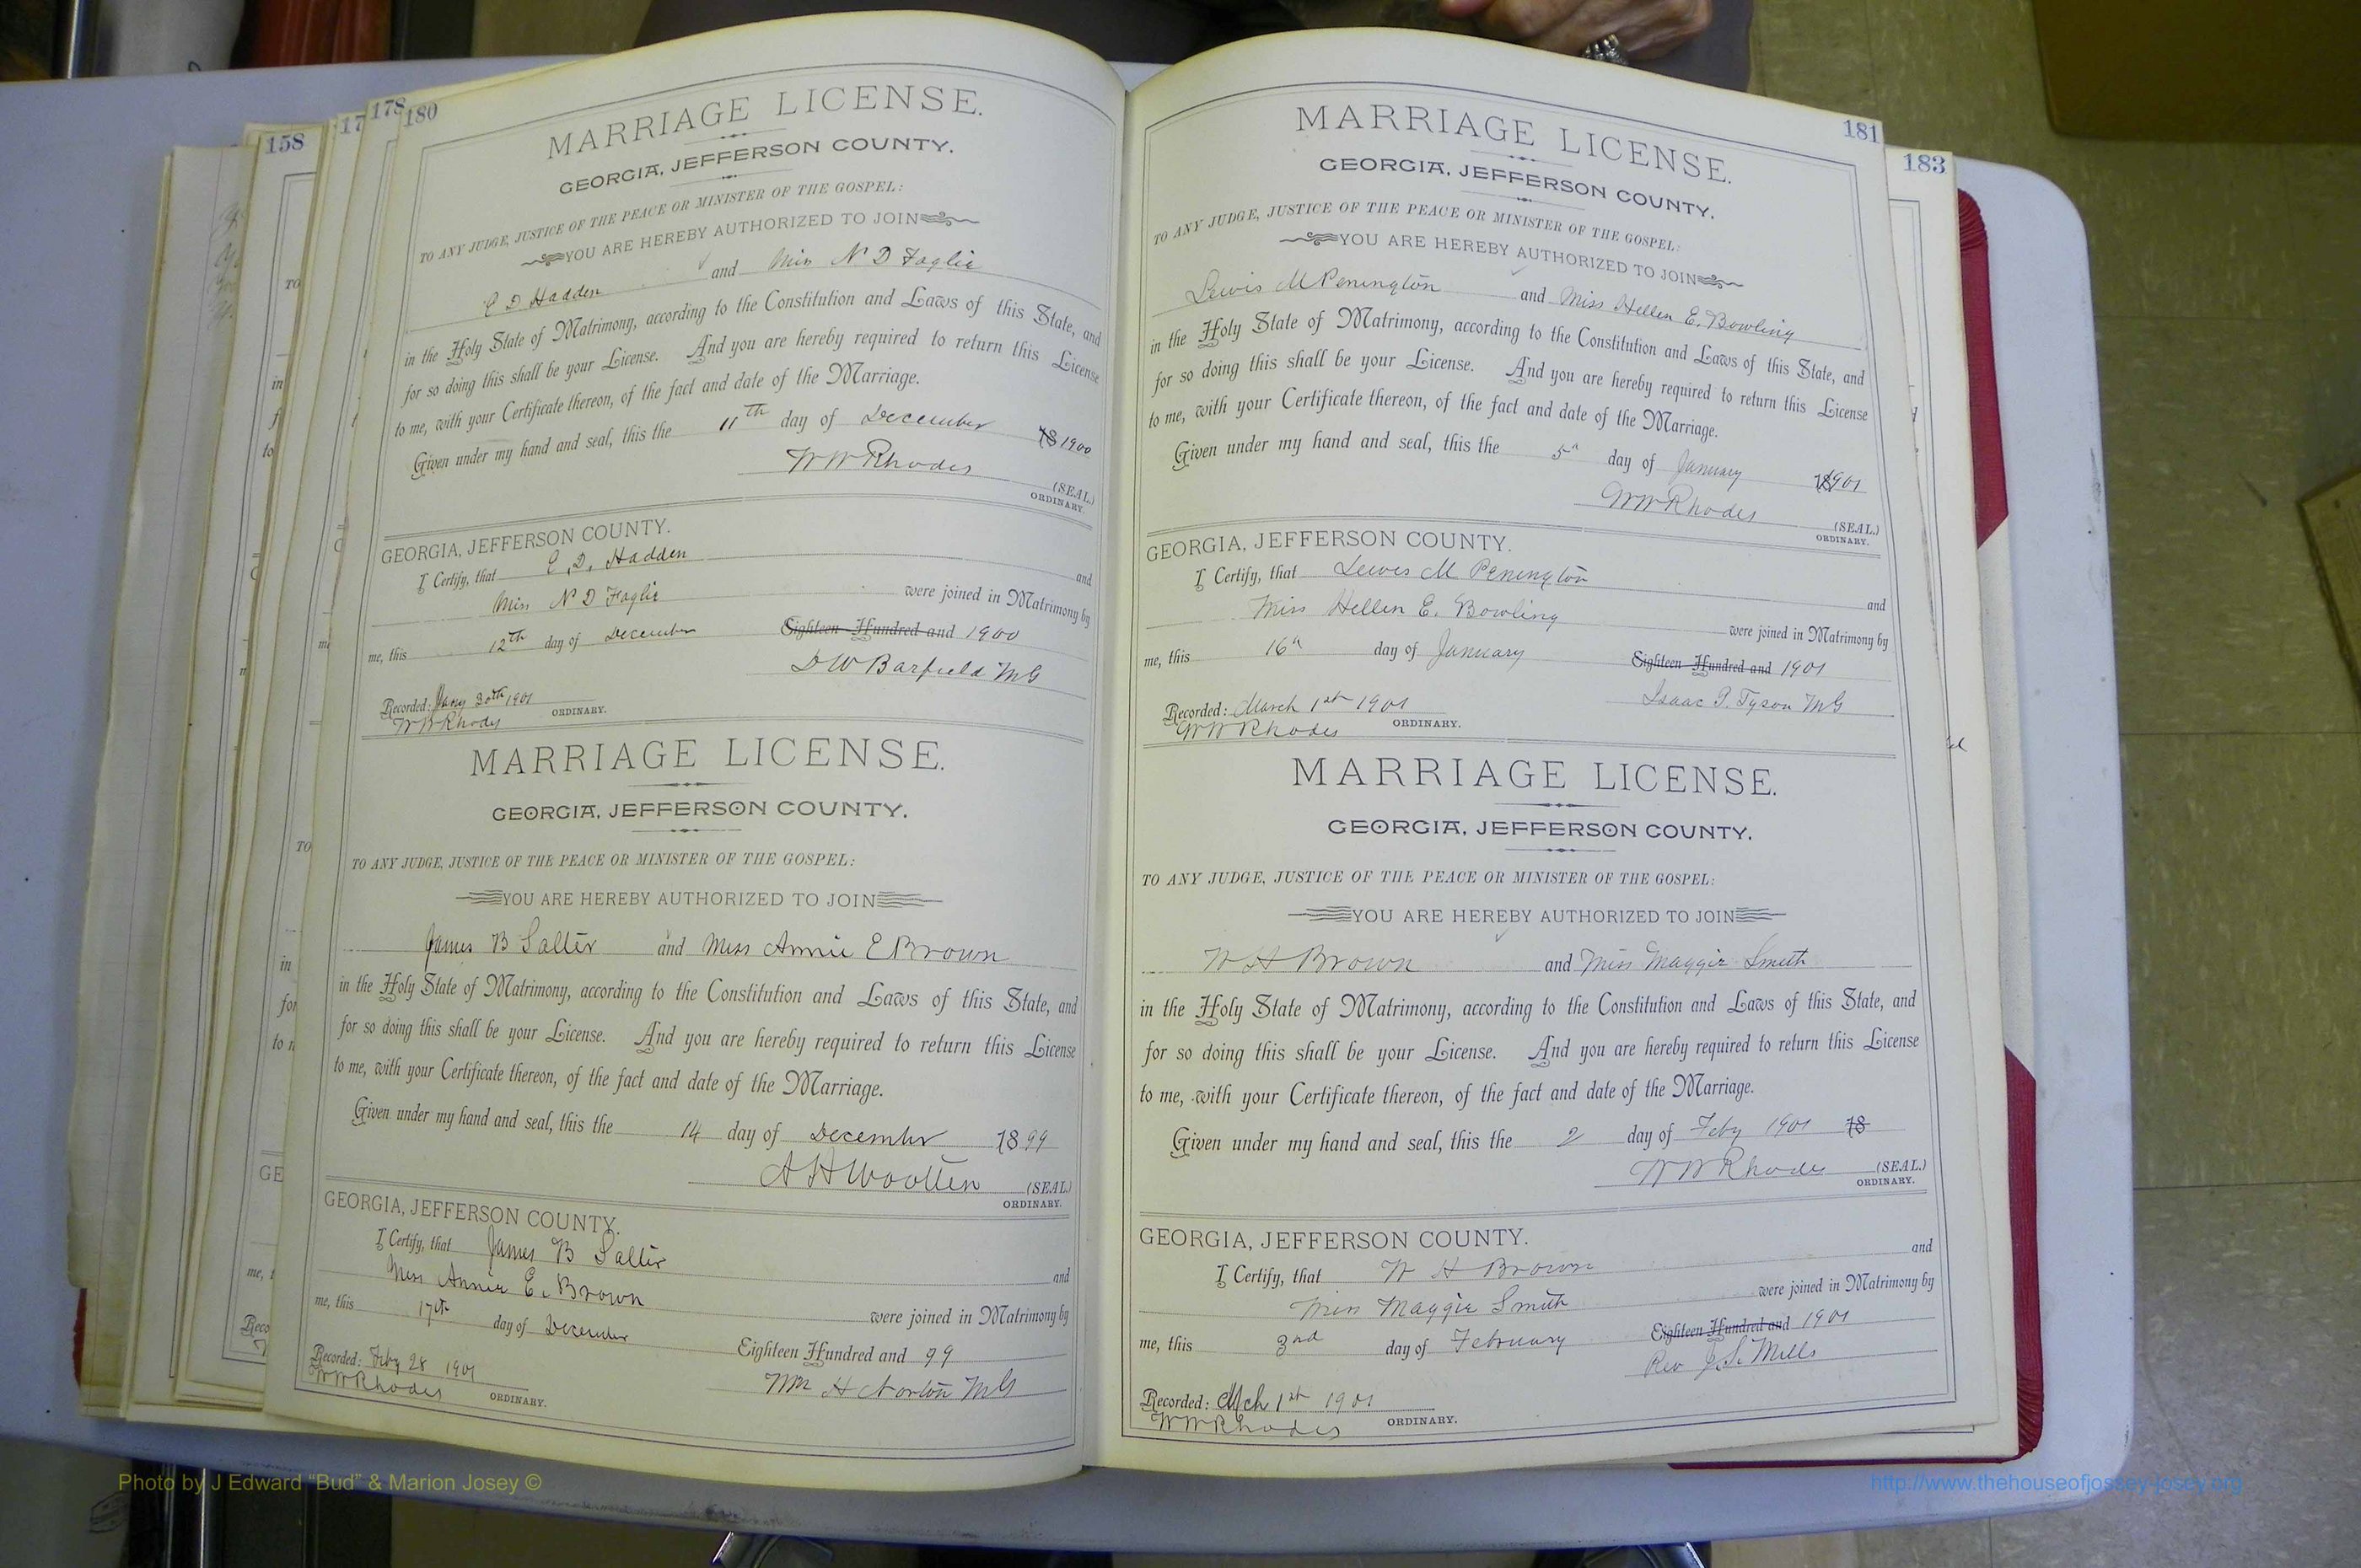 158
178
180
MARRIAGE LICENSE.
GEORGIA, JEFFERSON COUNTY.
TO ANY JUDGE, JUSTICE OF THE PEACE OR MINISTER OF THE GOSPEL:
YOU ARE HEREBY AUTHORIZED TO JOIN
C D Hadden and Miss N D Faglie
in the Holy State of Matrimony, according to the Constitution and Laws of this State, and
for so doing this shall be your License. And you are hereby required to return this License
to me, with your Certificate thereon, of the fact and date of the Marriage.
Given under my hand and seal, this the 11th day of December 18 1900
WW Rhodes (SEAL.)
ORDINARY.
GEORGIA, JEFFERSON COUNTY.
I Certify, that C. D. Hadden and
Miss N D Faglie were joined in Matrimony by
me, this 12th day of December Eighteen Hundred and 1900
D W Barfield MG
Recorded: Jany 30th 1901
WW Rhodes ORDINARY.
MARRIAGE LICENSE.
GEORGIA, JEFFERSON COUNTY.
TO ANY JUDGE, JUSTICE OF THE PEACE OR MINISTER OF THE GOSPEL:
YOU ARE HEREBY AUTHORIZED TO JOIN
James B Salter and Miss Annie E Brown
in the Holy State of Matrimony, according to the Constitution and Laws of this State, and
for so doing this shall be your License. And you are hereby required to return this License
to me, with your Certificate thereon, of the fact and date of the Marriage.
Given under my hand and seal, this the 14 day of December 1899
A H Wootten (SEAL)
ORDINARY.
GEORGIA, JEFFERSON COUNTY.
I Certify, that James B Salter and
Miss Annie E. Brown were joined in Matrimony by
me, this 17th day of December Eighteen Hundred and 99
Wm H Norton MG
Recorded: Feby 28 1901
WW Rhodes ORDINARY.
181
183
MARRIAGE LICENSE.
GEORGIA, JEFFERSON COUNTY.
TO ANY JUDGE, JUSTICE OF THE PEACE OR MINISTER OF THE GOSPEL:
YOU ARE HEREBY AUTHORIZED TO JOIN
Lewis M Penington and Miss Hellen E. Bowling
in the Holy State of Matrimony, according to the Constitution and Laws of this State, and
for so doing this shall be your License. And you are hereby required to return this License
to me, with your Certificate thereon, of the fact and date of the Marriage.
Given under my hand and seal, this the 5th day of January 1901
WW Rhodes (SEAL.)
ORDINARY.
GEORGIA, JEFFERSON COUNTY.
I Certify, that Lewis M Penington and
Miss Hellen E. Bowling were joined in Matrimony by
me, this 16th day of January Eighteen Hundred and 1901
Isaac P. Tyson MG
Recorded: March 1st 1901
WW Rhodes ORDINARY.
MARRIAGE LICENSE.
GEORGIA, JEFFERSON COUNTY.
TO ANY JUDGE, JUSTICE OF THE PEACE OR MINISTER OF THE GOSPEL:
YOU ARE HEREBY AUTHORIZED TO JOIN
W H Brown and Miss Maggie Smith
in the Holy State of Matrimony, according to the Constitution and Laws of this State, and
for so doing this shall be your License. And you are hereby required to return this License
to me, with your Certificate thereon, of the fact and date of the Marriage.
Given under my hand and seal, this the 2 day of Feby 1901 18
WW Rhodes (SEAL.)
ORDINARY.
GEORGIA, JEFFERSON COUNTY.
I Certify, that W H Brown and
Miss Maggie Smith were joined in Matrimony by
me, this 3rd day of February Eighteen Hundred and 1901
Rev J. S. Mills
Recorded: Mch 1st 1901
WW Rhodes ORDINARY.
Photo by J Edward “Bud” & Marion Josey ©
http://www.thehouseofjossey-josey.org